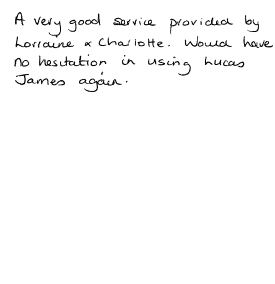 A very good service provided by
Lorraine & Charlotte. Would have
no hesitation in using Lucas
James again.